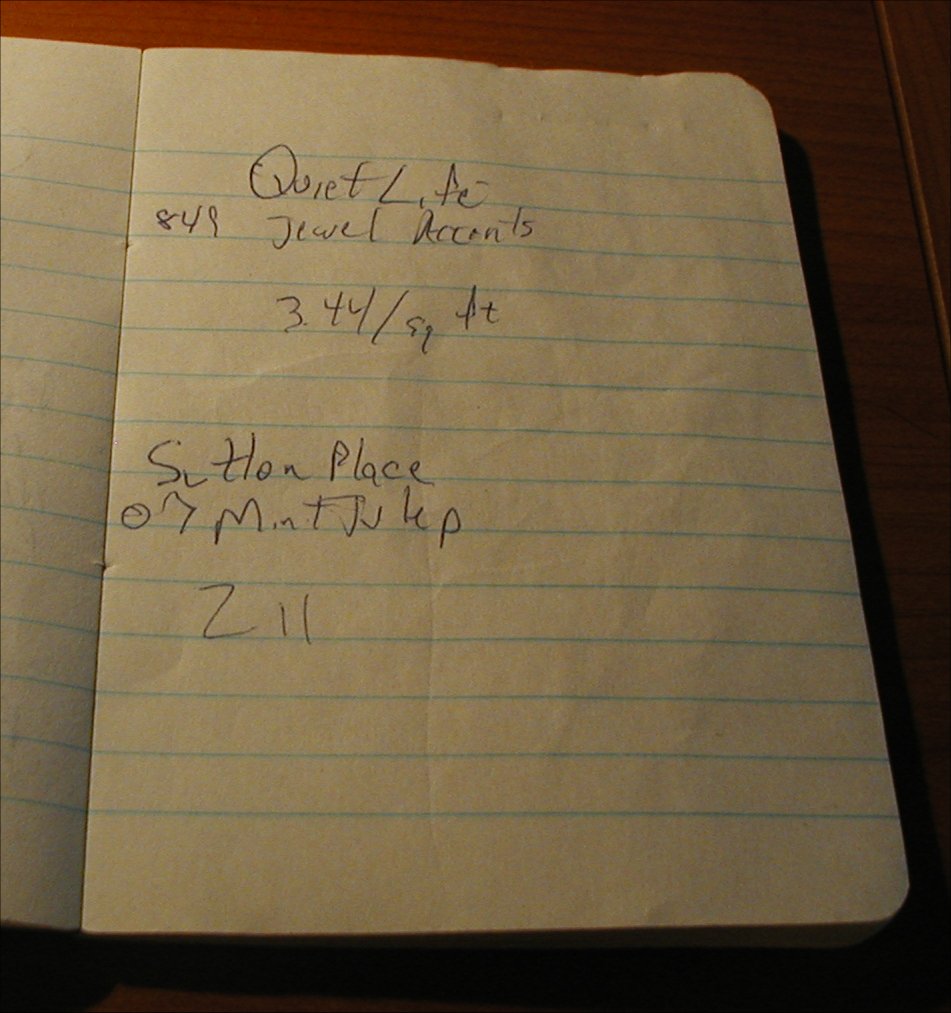 Quiet Life
849 Jewel Accents
3.44/sq ft
Sutton Place
07 Mint Julep
211